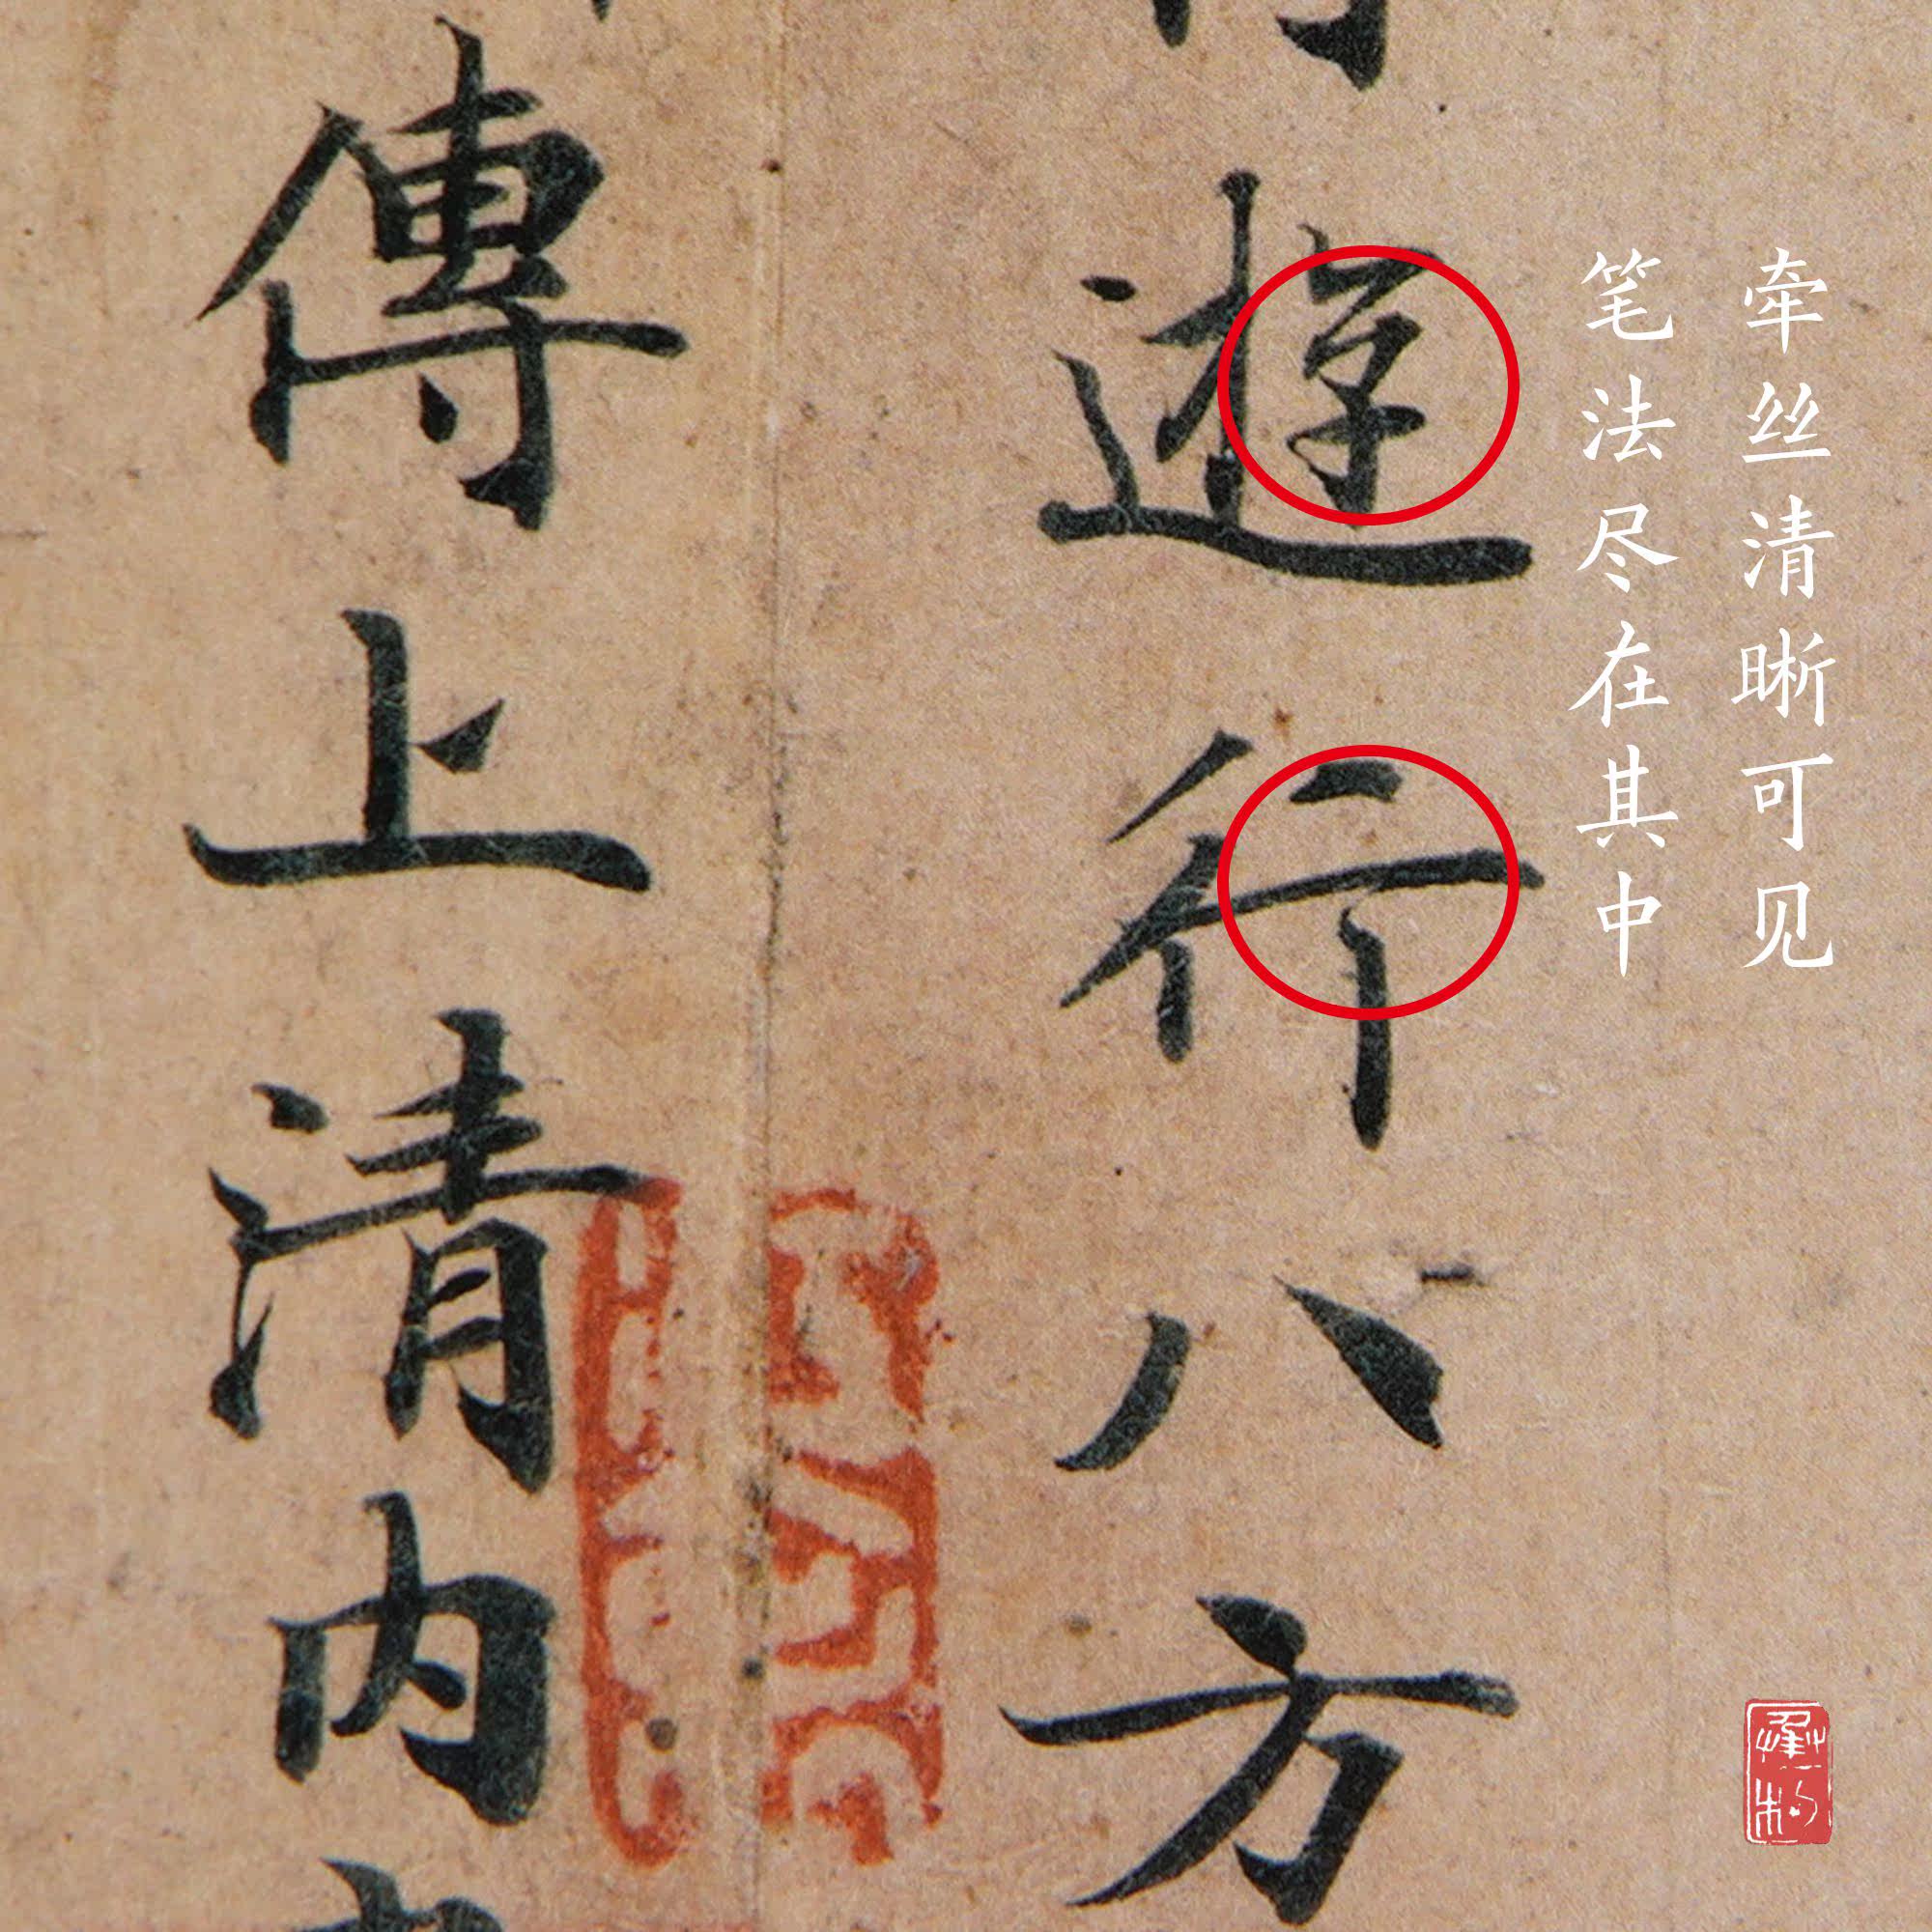 牵丝清晰可见
笔法尽在其中
遊行八方
傳上清内